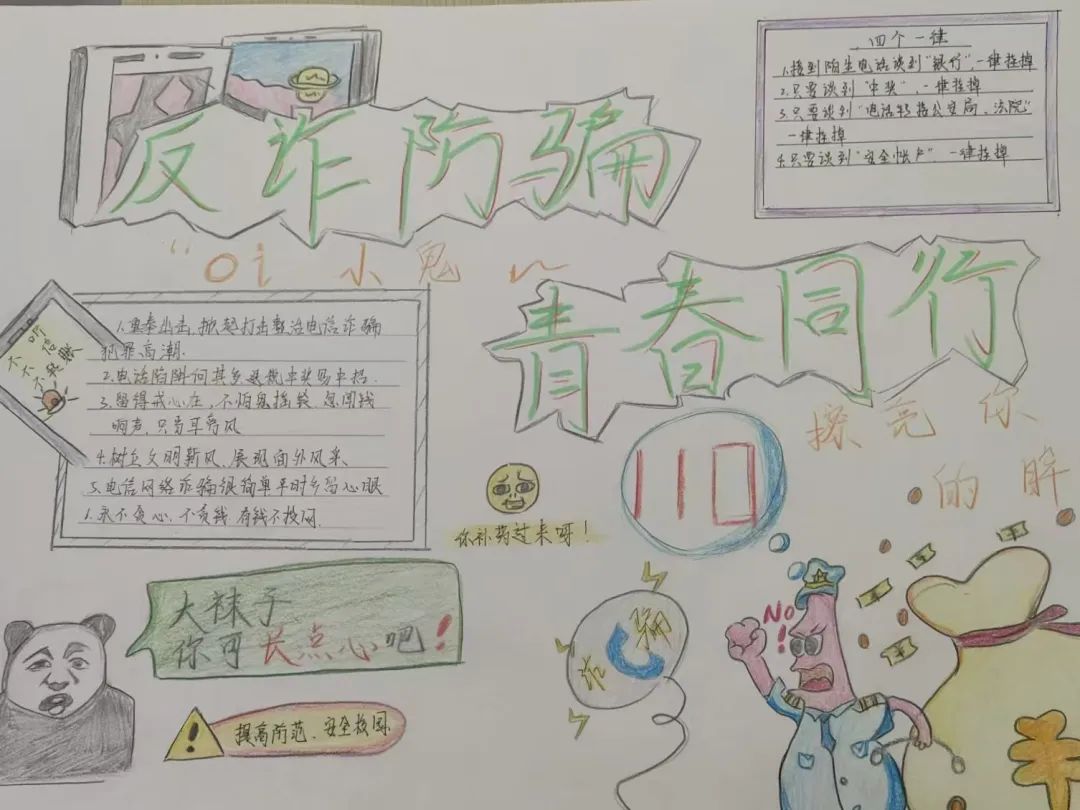 反诈防骗
"oi 小鬼"
青春同行
四个一律
1.接到陌生电话谈到"银行",一律挂掉
2.只要谈到"中奖",一律挂掉
3.只要谈到"电话转接公安局、法院"
一律挂掉
4.只要谈到"安全帐户",一律挂掉
不听
不信
不转账
1.重拳出击,掀起打击整治电信诈骗
犯罪高潮.
2.电话陷阱问其多
中奖
3.留得戒心在,不怕鬼摇铃.忽闻线
响声,只当耳旁风
4.树立文明新风,展现向外风采
5.电信网络诈骗很简单平时多留心眼
6.永不贪心,不贪钱 有钱不投网.
擦亮你
的眸
110
你补药过来呀!
大袜子
你可长点心吧!
提高防范、安全校园
诈骗
NO!